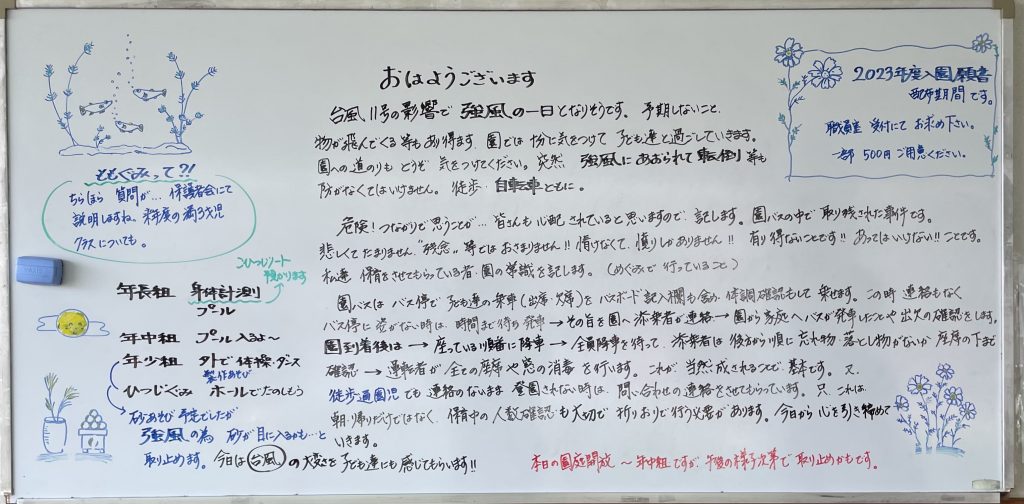 おはようございます
台風11号の影響で 強風の一日となりそうです。予期しないこと、
物が飛んでくる等もあり得ます。園では十分に気をつけて 子ども達と過ごしていきます。
園への道のりも どうぞ 気をつけてください。突然 強風にあおられて転倒等も
防がなくてはいけません。徒歩・自転車ともに。
危険！つながりで思うことが… 皆さんも心配されていると思いますので、記します。園バスの中で取り残された事件です。
悲しくてたまりません。"残念"等ではおさまりません!! 情けなくて、憤りしかありません!! 有り得ないことです!! あってはいけない!! ことです。
私達、保育をさせてもらっている者、園の常識を記します。(めぐみで行っていること)
園バスは バス停で 子ども達の乗車(出席・欠席)を バスボード記入欄も含み 体調確認もして 乗せます。この時 連絡もなく
バス停に 姿がない時は、時間まで待ち発車→その旨を園へ添乗者が連絡→園から家庭へバスが発車したことや出欠の確認をします。
園到着後は→座っている順番に降車→全員降車を待って、添乗者は後方から順に忘れ物 落とし物がないか 座席の下まで
確認→運転者が 全ての座席や窓の消毒を行います。これが、当然、成されることで、基本です。又、
徒歩通園児でも 連絡のないまま 登園されない時は、問い合わせの連絡をさせてもらっています。只、これは、
朝・帰りだけではなく、保育中の人数確認も大切で 折りおりで行う必要があります。今日から 心を引き締めて
いきます。
本日の園庭開放 〜年中組ですが、午後の様子次第で 取り止めかもです。
2023年度入園願書
配布期間です。
職員室 受付にて お求め下さい。
一部 500円ご用意ください。
ももぐみって?!
ちらほら 質問が… 保護者会にて
説明しますね、来年度の満3才児
クラスについても。
こひつじノート
預かります
年長組 身体計測
プール
年中組 プール入るよ〜
年少組 外で体操・ダンス
製作あそび
ひつじぐみ ホールでたのしもう
砂あそび 予定でしたが
強風の為 砂が目に入るかも…と
取り止めます。今日は 台風 の大変さを子ども達にも感じてもらいます!!